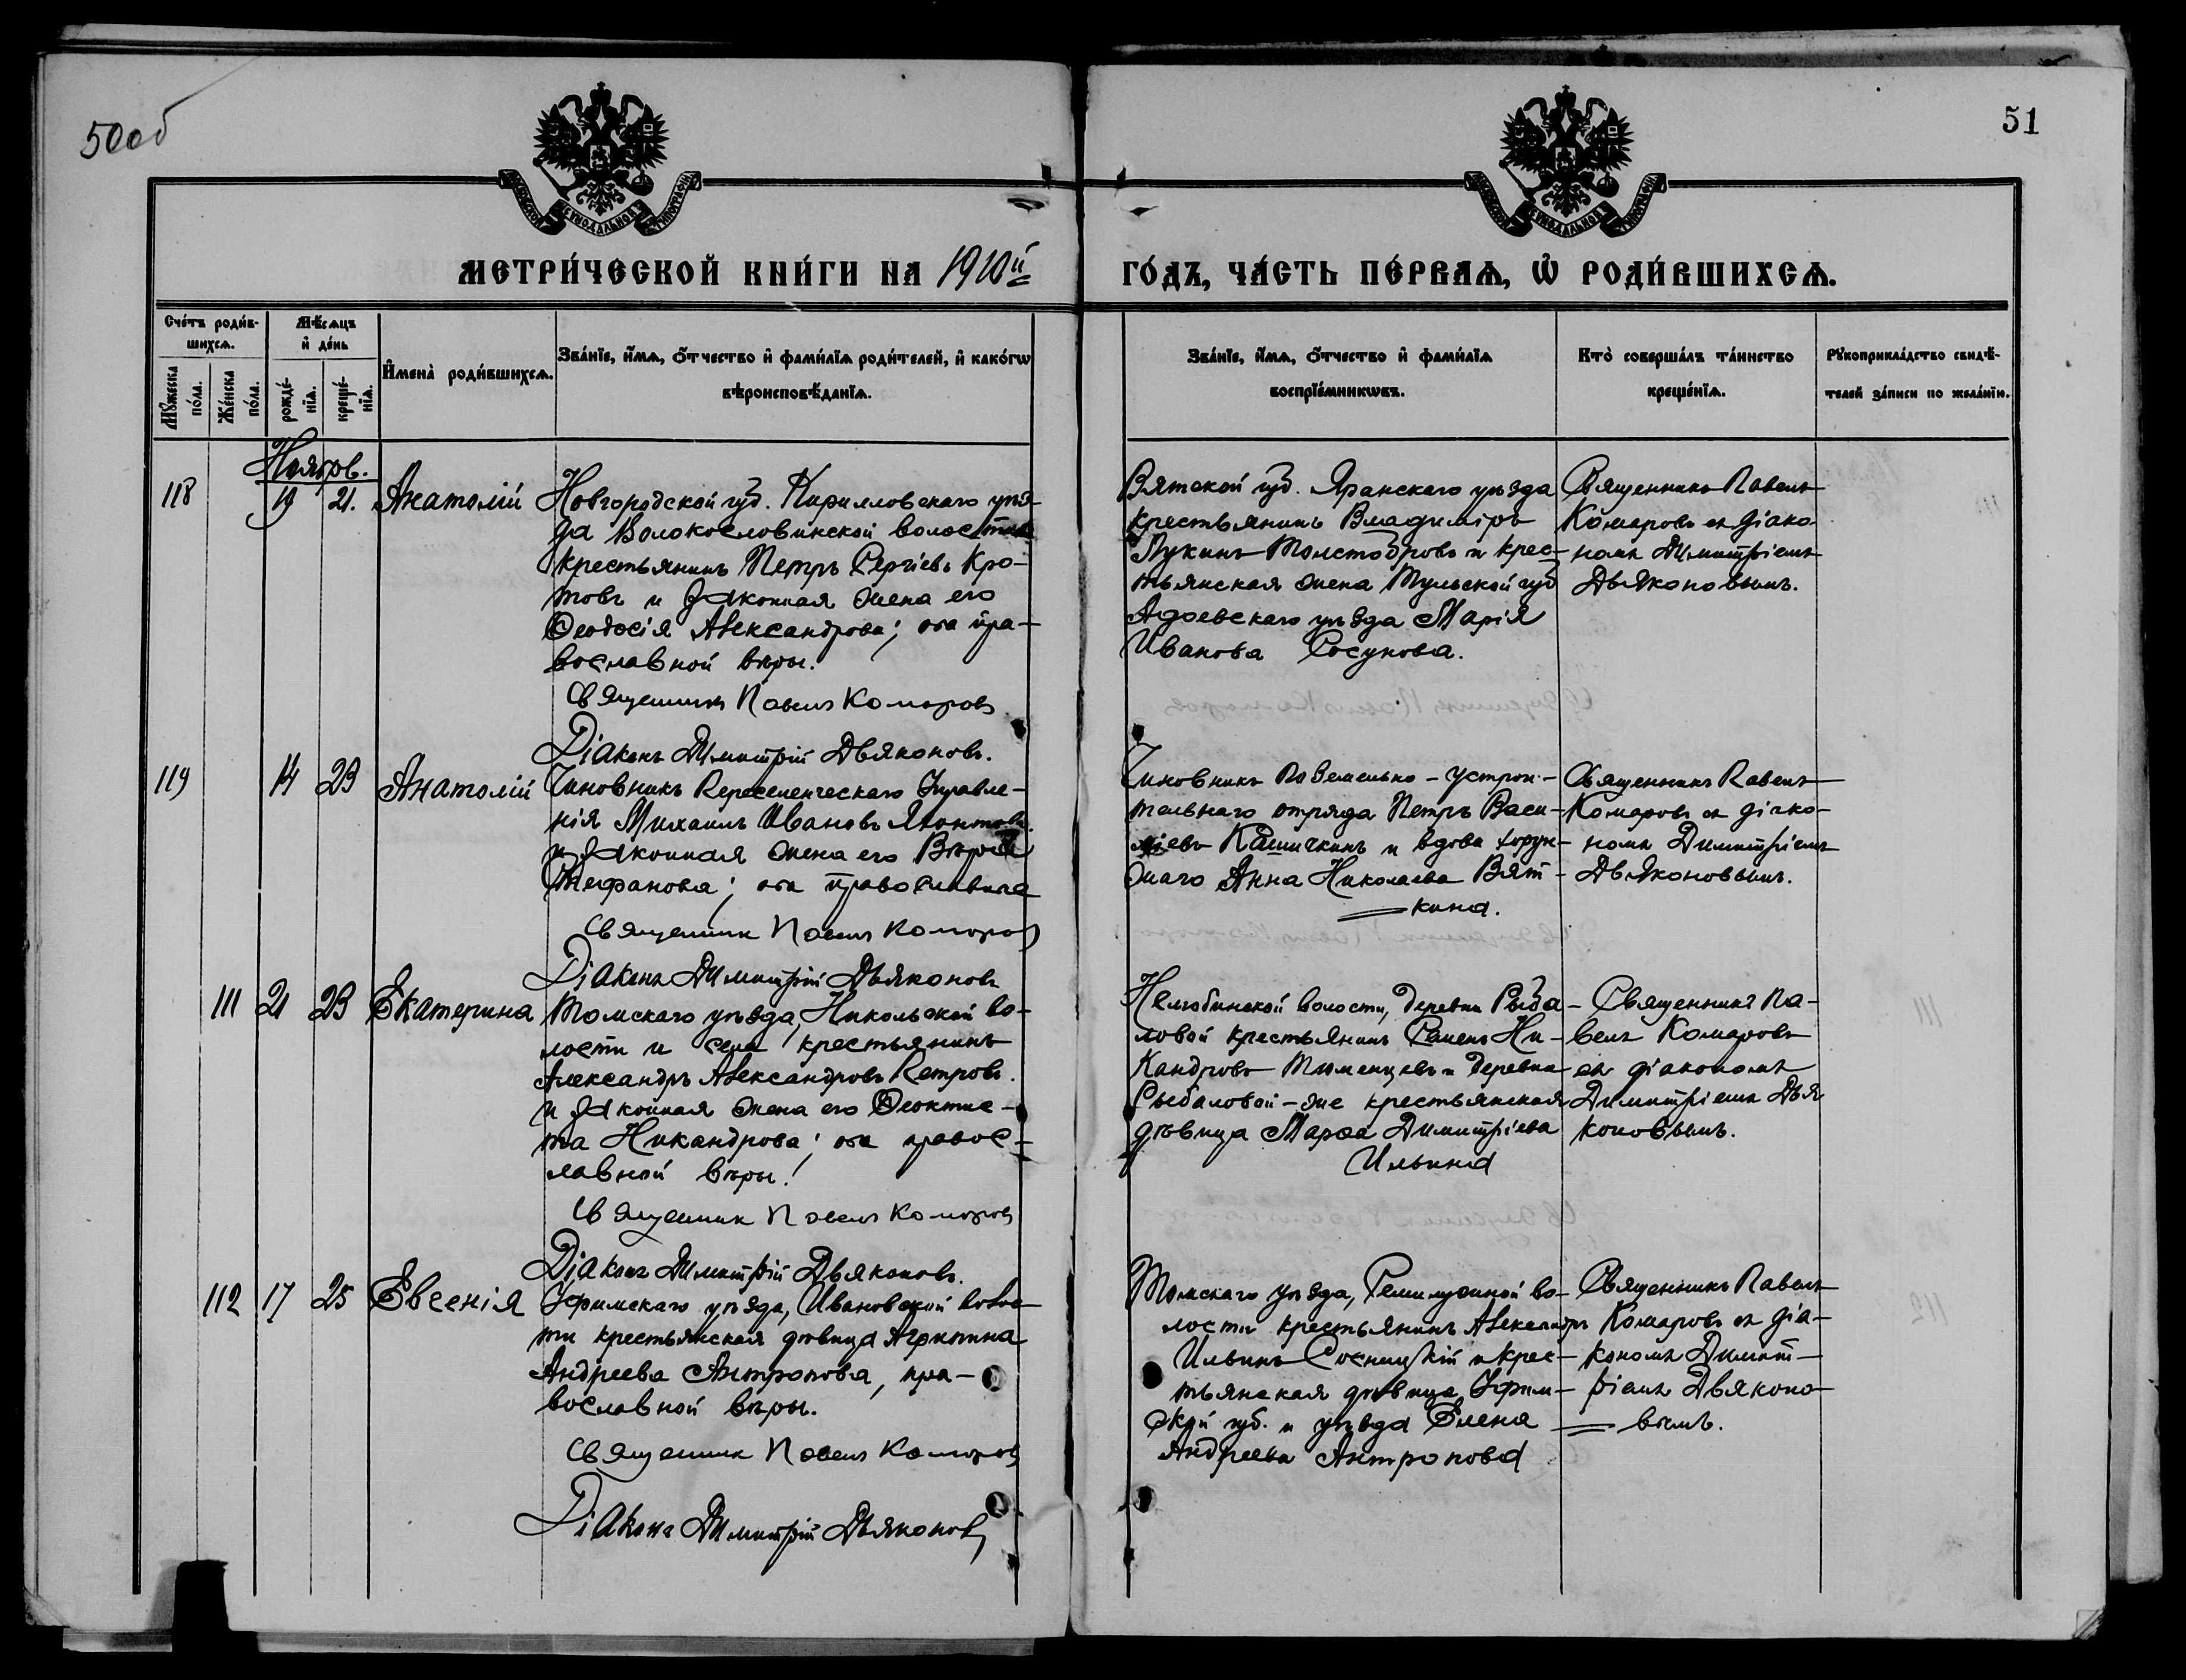 50 об
51
МЕТРИ́ЧЕСКОЙ КНИ́ГИ НА 1910й
ГО́ДЪ, ЧА́СТЬ ПЕ́РВАѦ, Ѡ РОДИ́ВШИХСѦ.
Сче́тъ роди́в-
шихсѧ.
Мꙋ́жеска по́ла.
Же́нска по́ла.
Мѣ́сѧцъ
и҆ де́нь
рожде́-нїѧ.
креще́-нїѧ.
И҆мена̀ роди́вшихсѧ.
Зва́нїе, и҆́мѧ, ѻ҆́тчество и҆ фами́лїѧ роди́телей, и҆ како́гѡ
вѣроисповѣ́данїѧ.
Зва́нїе, и҆́мѧ, ѻ҆́тчество и҆ фами́лїѧ
воспрїе́мникѡвъ.
Кто̀ соверша́лъ та́инство
креще́нїѧ.
Рꙋкоприкла́дство свидѣ́-
телей за́писи по жела́нїю.
Ноябрь.
118 19 21. Анатолій
Новгородской губ. Кирилловскаго уѣз-
да Волокословинской волости
крестьянинъ Петръ Сергіевъ Кро-
товъ и законная жена его
Ѳеодосія Александрова; оба пра-
вославной вѣры.
Священникъ Павелъ Комаровъ
Діаконъ Димитрій Дьяконовъ.
Вятской губ. Яранскаго уѣзда
крестьянинъ Владиміръ
Лукинъ Толстобровъ и крес-
тьянская жена Тульской губ
Адоевскаго уѣзда Марія
Иванова Сосунова.
Священникъ Павелъ
Комаровъ съ діако-
номъ Димитріемъ
Дьяконовымъ.
119 14 23 Анатолій
Чиновникъ Переселенческаго Управле-
нія Михаилъ Ивановъ
и законная жена его Вѣра
Стефанова; оба православные
Священник Павелъ Комаров
Діаконъ Димитрій Дьяконовъ
Чиновникъ Поземельно-Устрои-
тельнаго отряда Петръ Васи-
ліевъ Кашичкинъ и вдова хорун-
жаго Анна Николаева Вят-
кина.
Священникъ Павелъ
Комаровъ съ діако-
номъ Димитріемъ
Дьяконовымъ.
111 21 23 Екатерина
Томскаго уѣзда, Никольской во-
лости и села крестьянинъ
Александръ Александровъ Петровъ.
и законная жена его Ѳеоктис-
та Никандрова; оба правос-
лавной вѣры!
Священник Павелъ Комаровъ
Діаконъ Димитрій Дьяконовъ.
Нелюбинской волости, деревни Рыба-
ловой крестьянинъ Семенъ Ни-
кандровъ Тюменцевъ и деревни
Рыбаловой-же крестьянская
дѣвица Марѳа Димитріева
Ильина
Священникъ Па-
велъ Комаровъ
съ діакономъ
Димитріемъ Дья
коновымъ.
112 17 25 Евгенія
Уфимскаго уѣзда, Ивановской волос-
ти крестьянская дѣвица Агрипина
Андреева Антропова, пра-
вославной вѣры.
Священник Павелъ Комаровъ
Діаконъ Димитрій Дьяконовъ
Томскаго уѣзда, Семилужной во-
лости крестьянинъ Александръ
Ильинъ Сосницкій и крес-
тьянская дѣвица Уфим-
ской губ. и уѣзда Елена
Андреева Антропова
Священникъ Павелъ
Комаровъ съ діа-
кономъ Димит-
ріемъ Дьяконо-
вымъ.